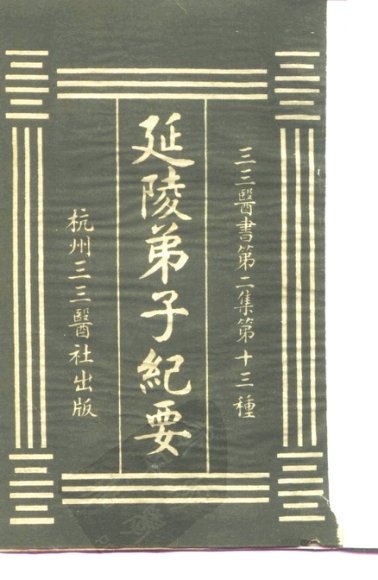 三三醫書第二集第十三種
延陵弟子紀要
杭州三三醫社出版